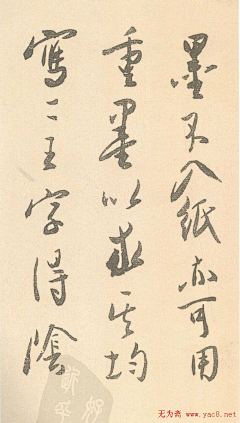 墨不入紙亦可用
重墨以求其均
寫二王字得陰
无为斋 www.yac8.com